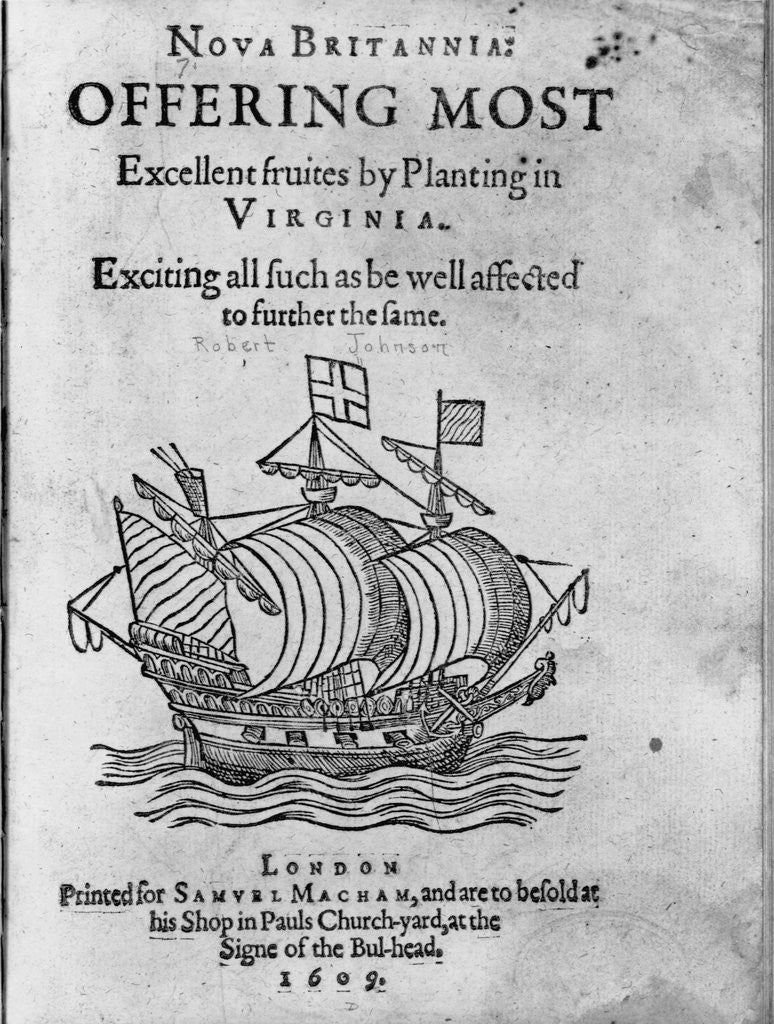 NOVA BRITANNIA:
7.
OFFERING MOST
Excellent fruites by Planting in
VIRGINIA.
Exciting all ſuch as be well affected
to further the ſame.
Robert Johnson
LONDON
Printed for SAMVEL MACHAM, and are to beſold at
his Shop in Pauls Church-yard, at the
Signe of the Bul-head.
1609.